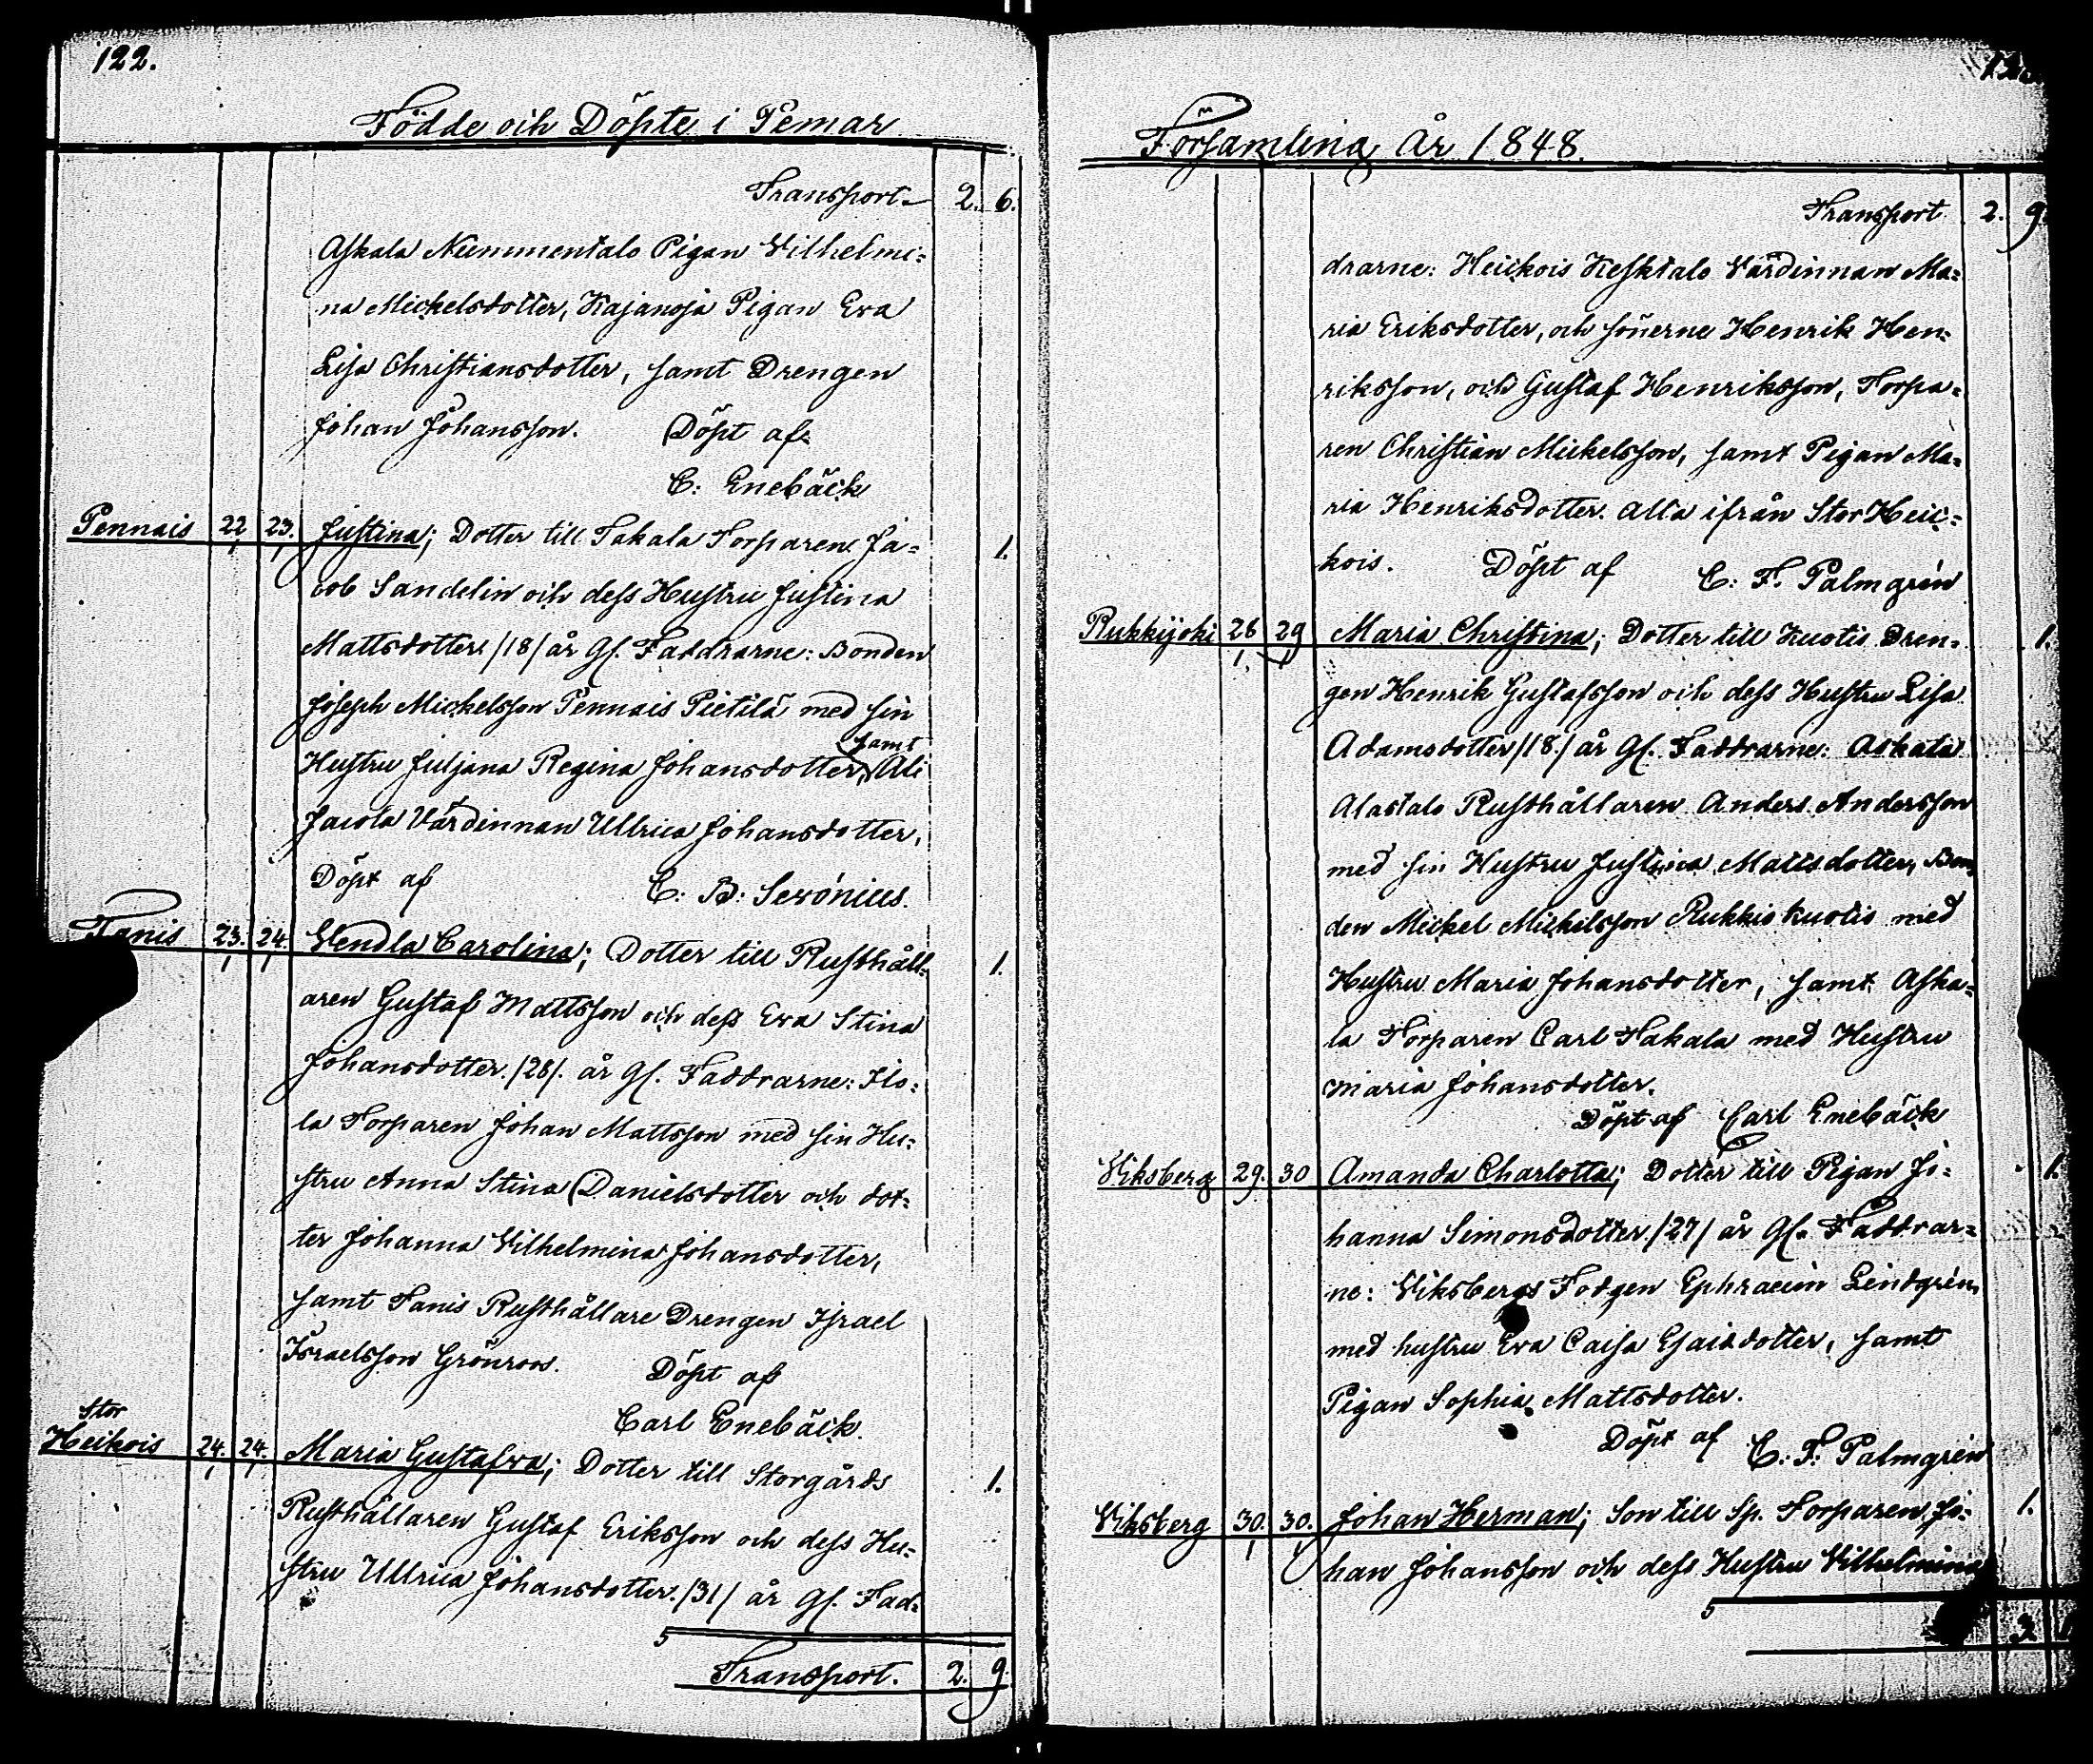 122.
Födde och Döpte i Pemar
Transport 2. 6.
Askala Nummentalo Pigan Vilhelmi=
na Mickelsdotter, Kajanoja Pigan Eva
Lisa Christiansdotter, samt Drengen
Johan Johansson. Döpt af
C: Enebäck
Pennais 22 23. Justina; Dotter till Takala Torparen Ja= 1.
cob Sandelin och dess Hustru Justina
Mattsdotter /18/ år Gl. Faddrarne: Bonden
Joseph Mickelsson Pennais Pietilä med sin
samt
Hustru Juljana Regina Johansdotter, Ali
Jacola Värdinnan Ullrica Johansdotter,
Döpt af C: B: Serónius.
Tanis 23. 24. Vendla Carolina; Dotter till Rusthåll= 1.
aren Gustaf Mattsson och dess Eva Stina
Johansdotter. /28/. år Gl. Faddrarne: Ilo=
la Torparen Johan Mattsson med sin Hu=
stru Anna Stina Danielsdotter och dot=
ter Johanna Vilhelmina Johansdotter,
samt Tanis Rusthållare Drengen Israel
Israelsson Grönroos. Döpt af
Carl Enebäck.
Stor
Heikois 24. 24. Maria Gustafva; Dotter till Storgårds 1.
Rusthållaren Gustaf Eriksson och dess Hu=
stru Ullrica Johansdotter. /31/ år Gl. Fad=
5
Transport. 2. 9
Församling År 1848.
Transport 2. 9.
drarne: Heickois Kesktalo Värdinnan Ma=
ria Eriksdotter, och sönerne Henrik Hen=
riksson, och Gustaf Henriksson, Torpa=
ren Christian Mickelsson, samt Pigan Ma=
ria Henriksdotter. Alla ifrån Stor Heic=
kois. Döpt af C: F. Palmgrén
Rukkijoki 28 29 Maria Christina; Dotter till Kuotis Dren= 1.
gen Henrik Gustafsson och dess Hustru Lisa
Adamsdotter /18/ år Gl. Faddrarne: Askala
Alastalo Rusthållaren Anders Andersson
med sin Hustru Justina Mattsdotter, Bon
den Mickel Mickelsson Rukkis kuotis med
Hustru Maria Johansdotter, samt Aska=
la Torparen Carl Takala med Hustru
Maria Johansdotter.
Döpt af Carl Enebäck
Viksberg 29. 30 Amanda Charlotta; Dotter till Pigan Jo= 1.
hanna Simonsdotter. /27/ år Gl. Faddrar=
ne: Viksbergs Fodgen Ephraeim Lindgrén
med hustru Eva Caisa Esaisdotter, samt
Pigan Sophia Mattsdotter.
Döpt af C: F: Palmgrén
Viksberg 30. 30. Johan Herman; Son till Sp. Torparen Jo= 1.
han Johansson och dess Hustru Vilhelmina
5